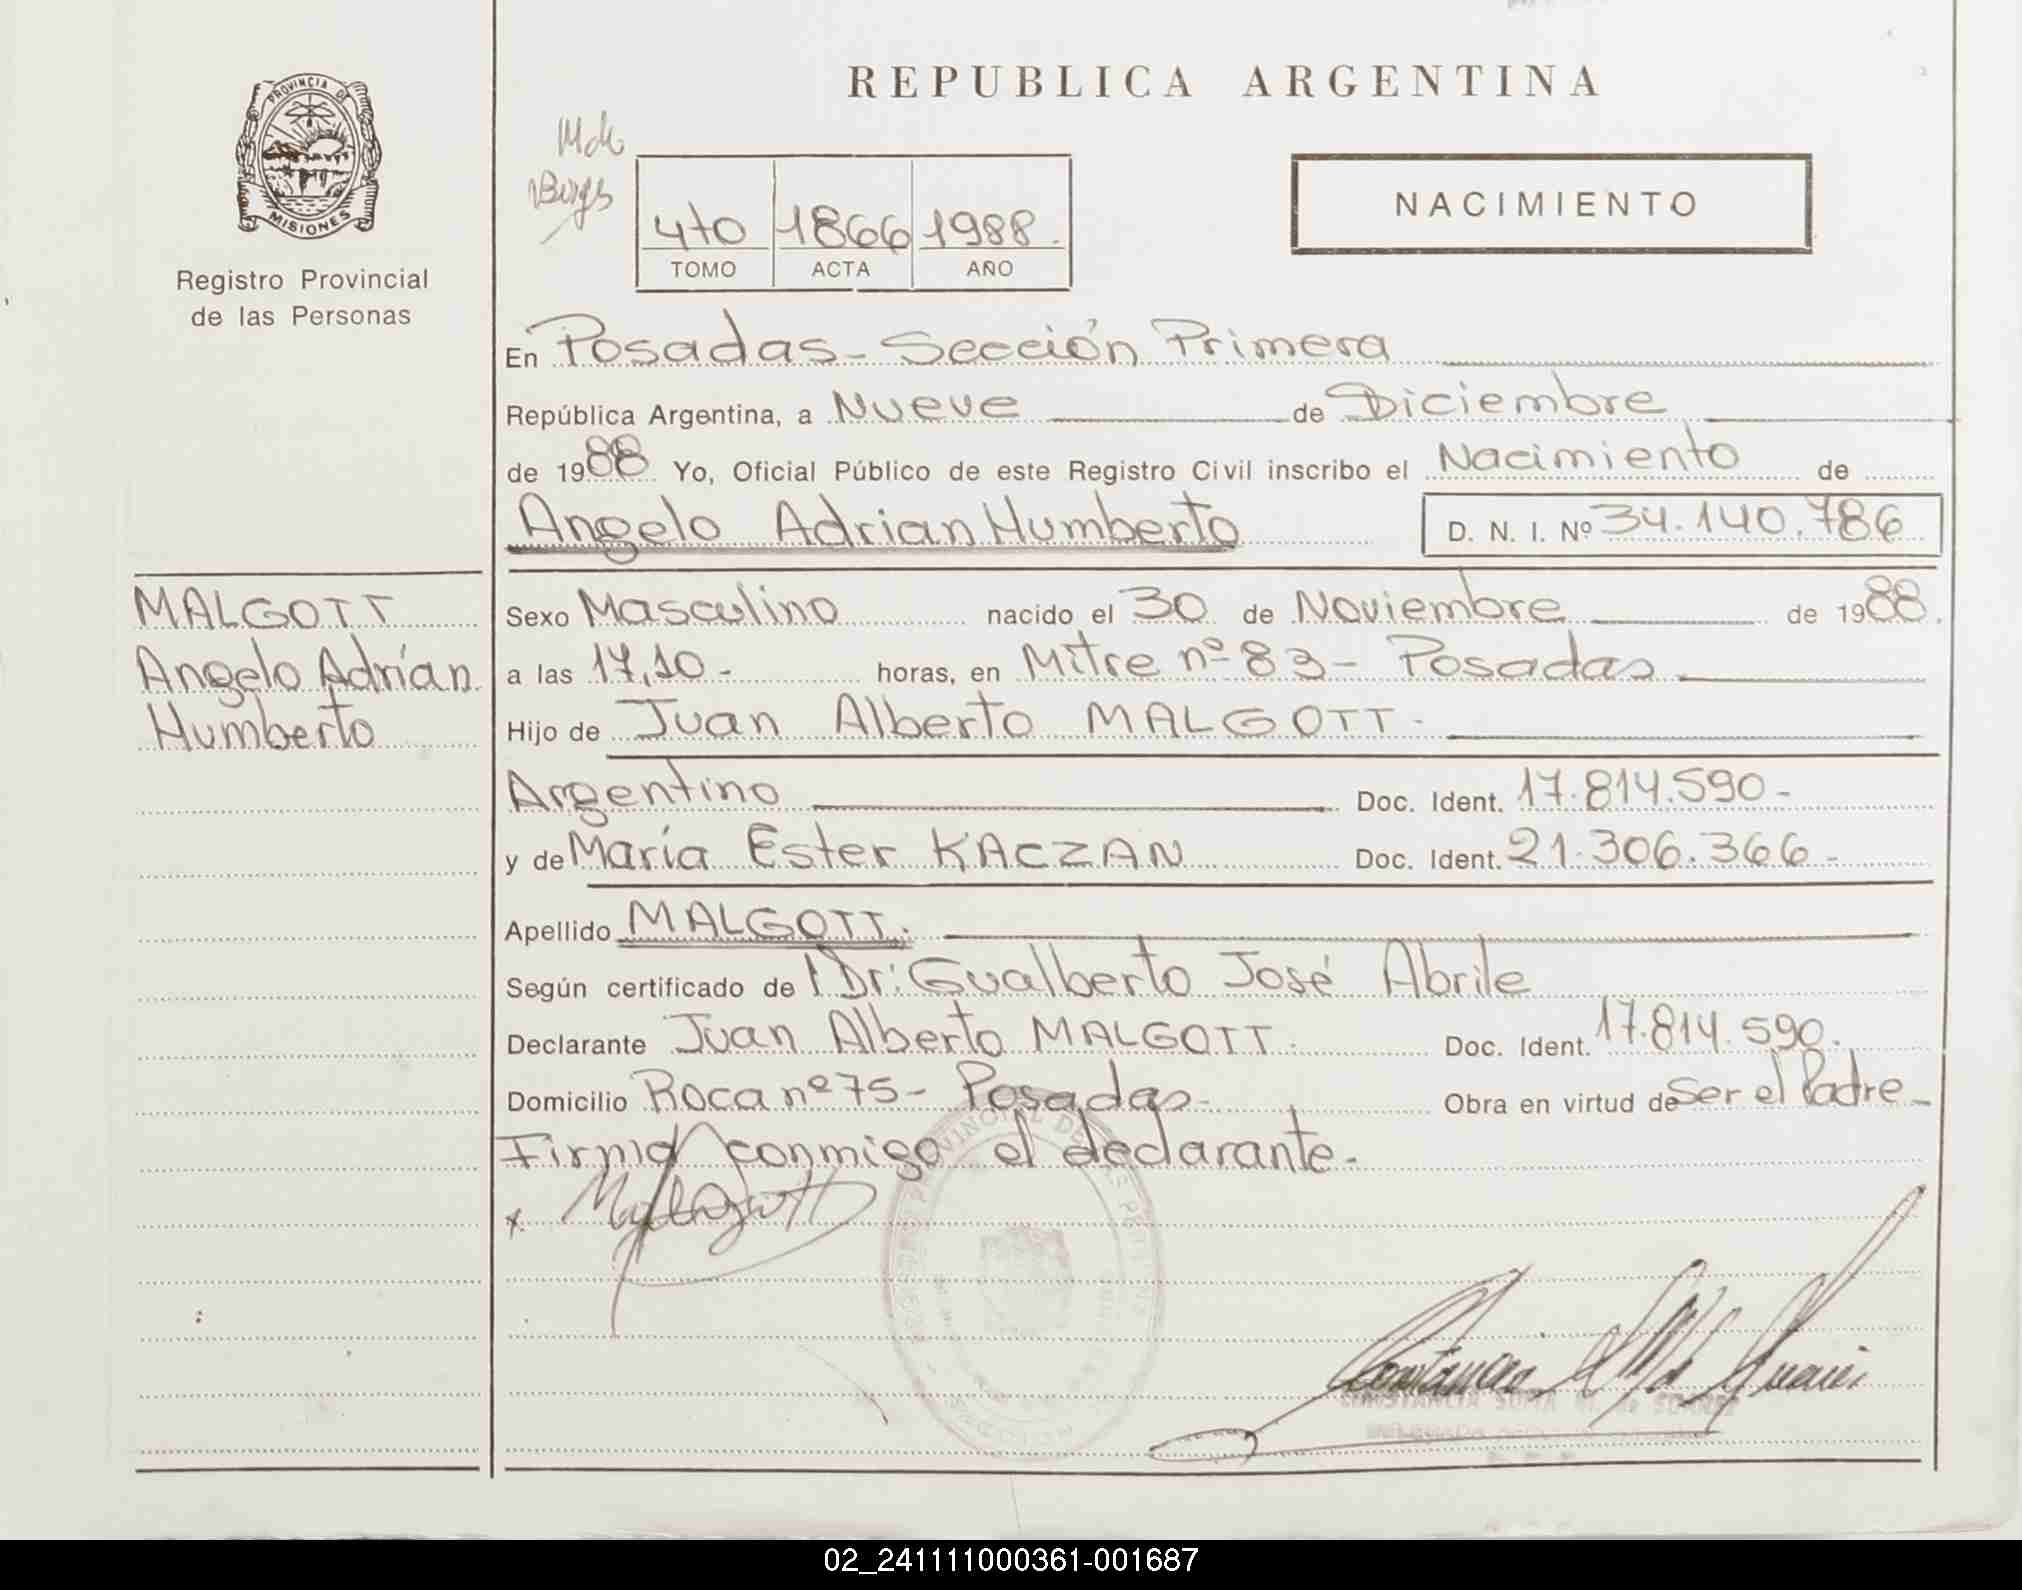 REPUBLICA ARGENTINA
PROVINCIA DE
MISIONES
Registro Provincial
de las Personas
4to 1866 1988.
TOMO ACTA AÑO
NACIMIENTO
En Posadas - Sección Primera
República Argentina, a Nueve de Diciembre
de 1988 Yo, Oficial Público de este Registro Civil inscribo el Nacimiento de
Angelo Adrian Humberto D. N. I. Nº 34.140.786
MALGOTT
Angelo Adrían
Humberto
Sexo Masculino nacido el 30 de Noviembre de 1988.
a las 17,10 - horas, en Mitre nº 83 - Posadas
Hijo de Juan Alberto MALGOTT -
Argentino Doc. Ident. 17.814.590 -
y de María Ester KACZAN Doc. Ident. 21.306.366 -
Apellido MALGOTT.
Según certificado de l Dr: Gualberto José Abrile
Declarante Juan Alberto MALGOTT. Doc. Ident. 17.814.590.
Domicilio Roca nº 75 - Posadas - Obra en virtud de Ser el Padre -
Firma conmigo el declarante -
x Malgott
02_241111000361-001687